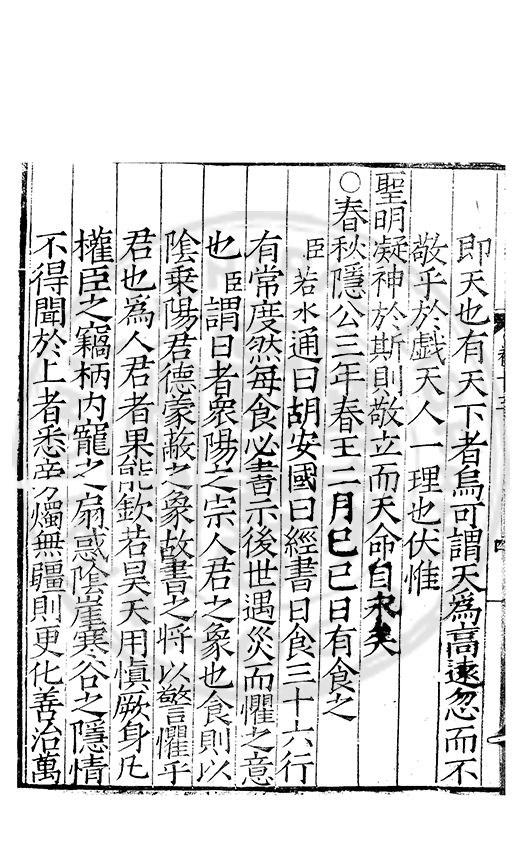 即天也有天下者烏可謂天爲高遠忽而不
敬乎於戯天人一理也伏惟
聖明凝神於斯則敬立而天命自永矣
○春秋隱公三年春王二月巳巳日有食之
臣若水通曰胡安國曰經書日食三十六行
有常度然每食必書示後世遇災而懼之意
也臣謂日者衆陽之宗人君之象也食則以
陰乗陽君德蒙蔽之象故書之将以警懼乎
君也爲人君者果能欽若昊天用愼厥身凡
權臣之竊柄内寵之扇惑陰崖寒谷之隱情
不得聞於上者悉旁燭無疆則更化善治萬